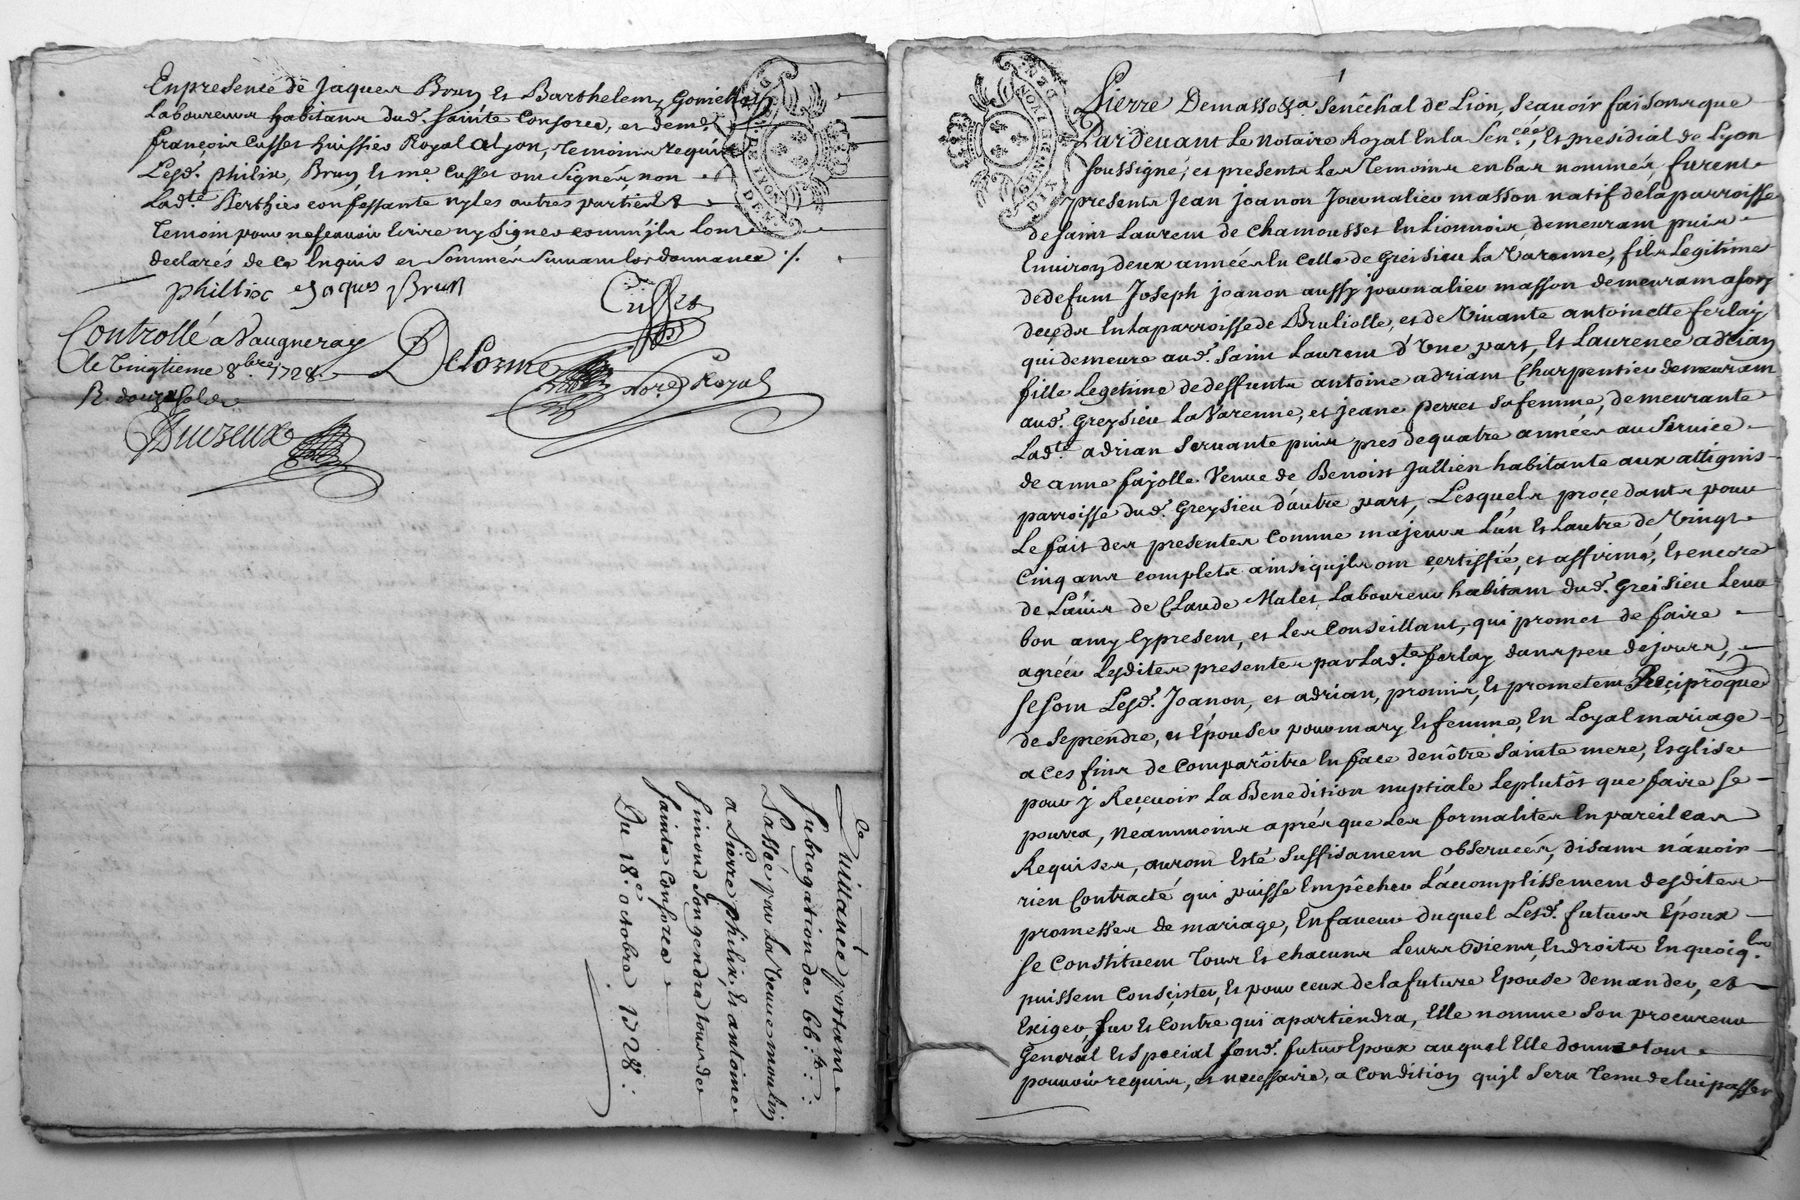 En presence de Jaques Brun et Barthelemy
Laboureurs habitans dud. sainte Consorce, et de me.
françois Cusset huissier Royal a Lyon, temoins requis
Lesd. philix, Brun et me. Cusset ont signé, non
Lad.te Berthier confessante ny les autres parties et
temoin pour ne sçavoir Ecrire ny signer comm'jls l'ont
declarés de ce Enquis et sommés suivant l'ordonnance ./.
phillix Jaques Brun Cusset
Controllé a Vaugneray
le vingtieme 8bre. 1728. Delorme No.re Royal
R. douze sols
Duizeux
Quittance portant
subrogation de 66.lt.
Passée par La veuve moulin
a Pierre philix, Et antoine
simond son gendre tous de
sainte Consorce
Du 18.e octobre 1728.
1
Pierre Demasso &.a senêchal de Lion, sçavoir faisons que
Pardevant Le Notaire Royal En la sen.cée, Et presidial de Lyon
soussigné, et presents Les temoins en bas nommés, furent
presents Jean joanon Journalier masson natif de la parroisse
de saint Laurent de Chamousset En Lionnois, demeurant puis
Environ deux années En Celle de Greisieu La Varenne, fils Legitime
de defunt Joseph joanon aussy journalier masson demeurant a son
deçeds En la parroisse de Brulliolle, et de vivante antoinette ferlay
qui demeure aud. saint Laurent d'Une part, Et Laurence adrian
fille Legetime de deffunts antoine adriam Charpentier demeurant
aud. Greysieu La Varenne, et jeane perret sa femme, demeurante
Lad.te adrian servante puis pres de quatre années au service
de anne fajolle veuve de Benoist Jullien habitante aux attignis
parroisse dud. Greysieu d'autre part, Lesquels proçedants pour
Le fait des presentes Comme majeurs L'un Et Lautre de Vingt
Cinq ans complets ainsi qu'jls ont certiffié, et affirmé, Et encore
de L'avis de Claude Malet Laboureur habitant dud. Greisieu Leur
bon amy Cy present, et Les Conseillant, qui promet de faire
agréer Lesdites presentes par Lad.te ferlay dans peu de jours,
se sont Lesd. Joanon, et adrian, promis, Et prometent Reçiproque
de se prendre, et Épouser pour mary Et femme, En Loyal mariage
a ces fins de Comparôitre En face de nôtre sainte mere, Esglise
pour y Reçevoir La Benediction nuptiale Leplutôt que faire se
pourra, neanmoins aprés que Les formalites En pareil cas
Requises, auront Esté suffisament observées, disants n'avoir
rien Contracté qui puisse Empêcher L'accomplissement desdites
promesses de mariage, En faveur duquel Lesd. futurs Époux
se Constituent Tous Et chacuns Leurs Biens, Et droits En quoiq.ls
puissent Consçister, Et pour ceux de la future Epouse demander, et
Exiger, sur Et Contre qui apartiendra, Elle nomme son procureur
Generál Et spocial sond. futur Epoux auquel Elle donne tout
pouvoir requis, et necessaire, a Condition qu'jl sera Tenu de lui passer